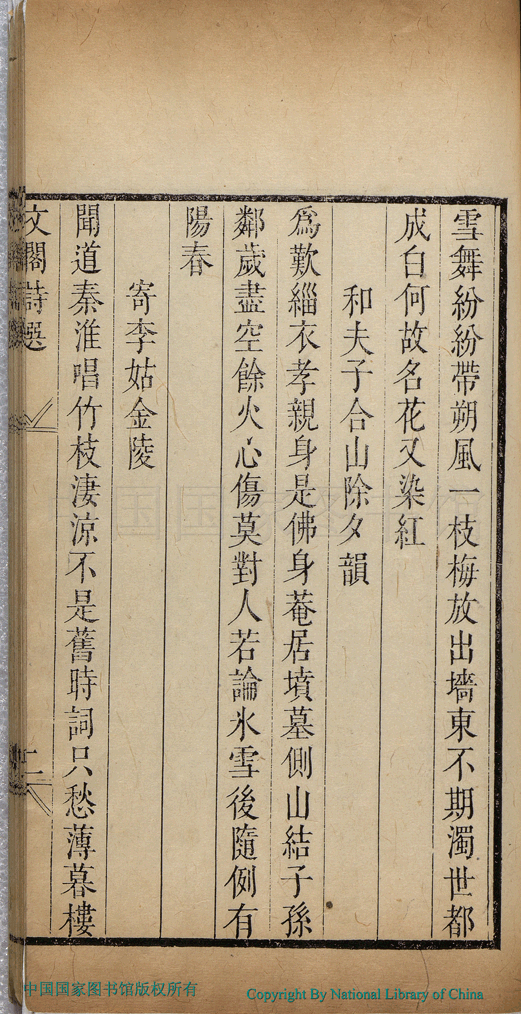 雪舞紛紛帶朔風一枝梅放出墻東不期濁世都
成白何故名花又染紅
和夫子合山除夕韻
爲歎緇衣孝親身是佛身菴居墳墓側山結子孫
鄰歲盡空餘火心傷莫對人若論氷雪後隨例有
陽春
寄李姑金陵
聞道秦淮唱竹枝淒涼不是舊時詞只愁薄暮樓
文閣詩選
二
中国国家图书馆版权所有
Copyright By National Library of China